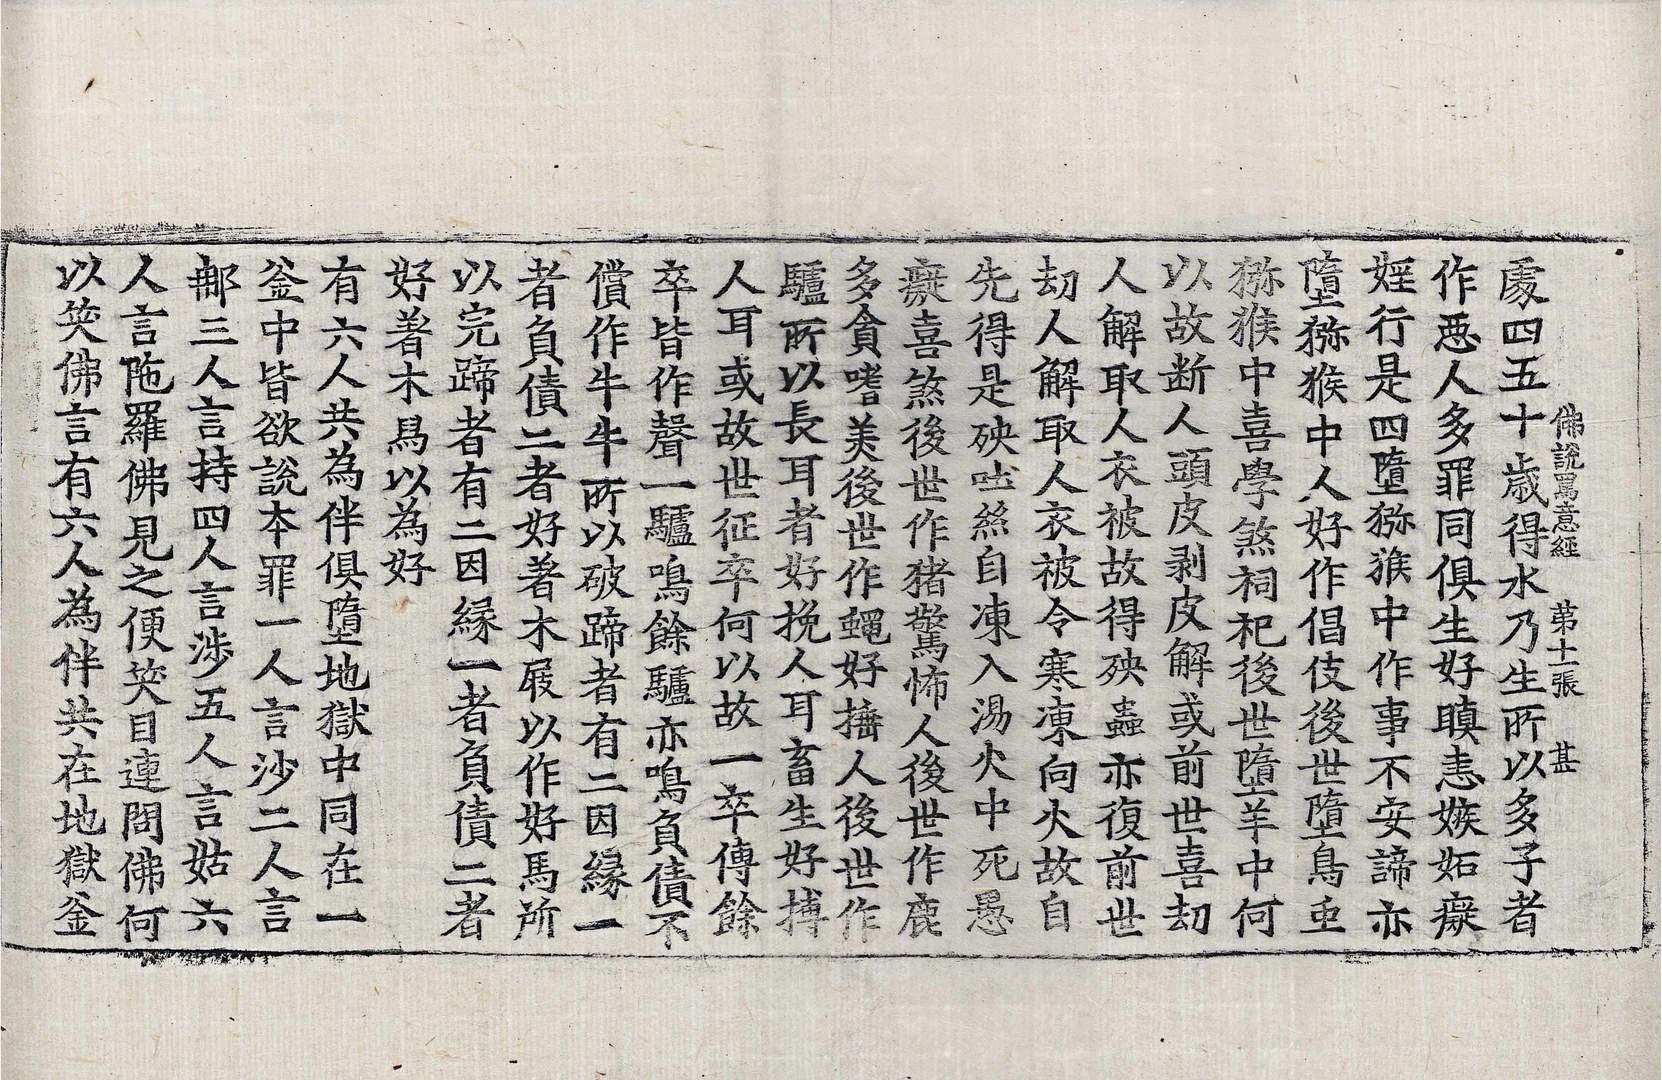 佛說罵意經 第十一張 甚
處四五十歲得水乃生所以多子者
作惡人多罪同俱生好瞋恚嫉妬癡
婬行是四墮猕猴中作事不安諦亦
墮猕猴中人好作倡伎後世墮鳥重
猕猴中喜學煞祠祀後世墮羊中何
以故断人頭皮剥皮解或前世喜刧
人解取人衣被故得殃蟲亦復前世
刧人解取人衣被令寒凍向火故自
先得是殃吐絲自凍入湯火中死愚
癡喜煞後世作猪驚怖人後世作鹿
多貪嗜美後世作蠅好擣人後世作
驢所以長耳者好挽人耳畜生好摶
人耳或故世征卒何以故一卒傳餘
卒皆作聲一驢鳴餘驢亦鳴負債不
償作牛牛所以破蹄者有二因縁一
者負債二者好著木屐以作好馬所
以完蹄者有二因縁一者負債二者
好著木舄以為好
有六人共為伴俱墮地獄中同在一
釜中皆欲說本罪一人言沙二人言
郍三人言持四人言涉五人言姑六
人言陁羅佛見之便笑目連問佛何
以笑佛言有六人為伴共在地獄釜